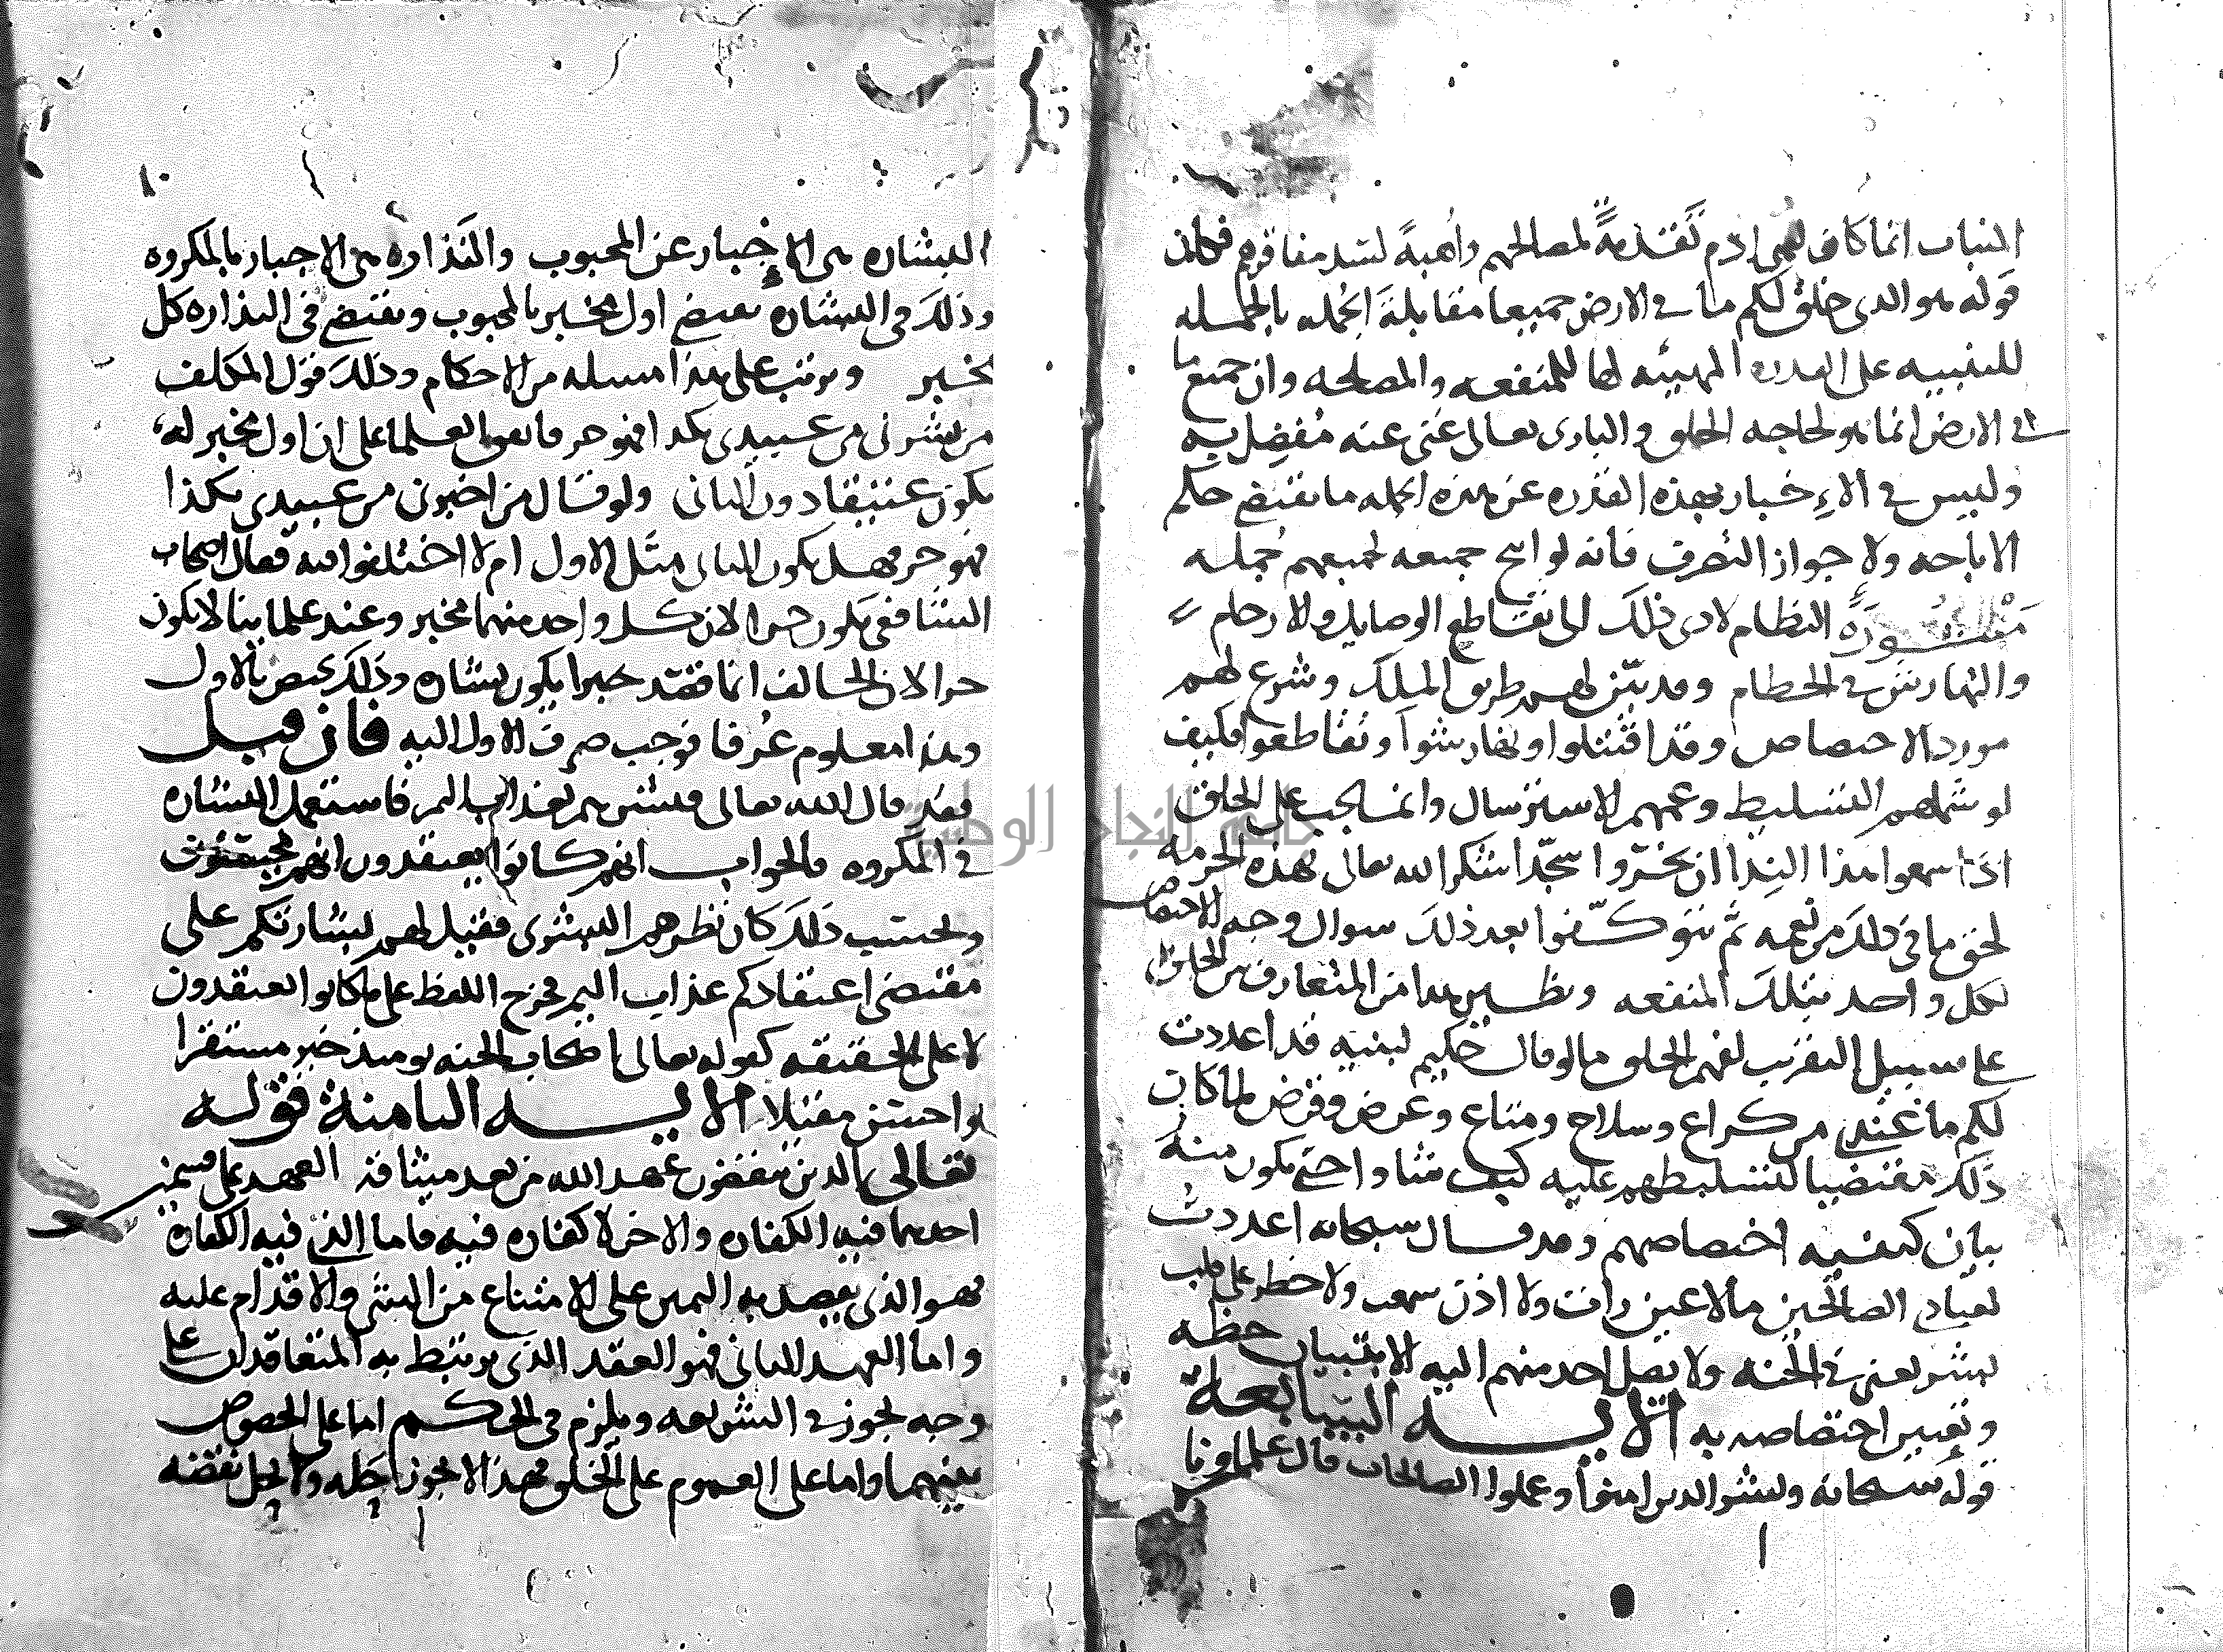 البنات انما كان لبني ادم تقدمة لمصالحهم واهبة لسد مفاقرهم فكان
قوله هو الذي خلق لكم ما في الارض جميعا مقابلة الجمله بالجمله
للتنبيه على القدره المهيئه لها للمنفعه والمصلحه وان جميع ما
في الارض انما هو لحاجه الخلق والبارى تعالى غنى عنه مفضل به
وليس في الاخبار بهذه القدره عن هذه الجمله ما يقتضي حكم
الاباحه ولا جواز التصرف فانه لو ابيح جميعه لجميعهم جمله
منثورة النظام لادى ذلك الى تقاطع الوصايل والارحام
والتهارش في الحطام وقد بين لهم طريق الملك وشرع لهم
مورد الاختصاص وقد اقتتلوا وتهارشوا وتقاطعوا فكيف
لو شملهم التسليط وعمهم الاسترسال وانما يجب على الخلق
اذا سمعوا هذا الندا ان يخروا سجدا شكرا لله تعالى بهذه الحرمه
لحق ما في ذلك من نعمه ثم يتوكفوا بعد ذلك سوال وجه الاختصاص
لكل واحد بتلك المنفعه ونظير هذا من المتعارف بين الخلق
على سبيل التقريب لفهم الخلق ما لو قال حكيم لبنيه قد اعددت
لكم ما عندي من كراع وسلاح ومتاع وعرض وقرض لما كان
ذلك مقتضيا لتسليطهم عليه كيف شاوا حتى يكون منه
بيان كيفيه اختصاصهم وقد قال سبحانه اعددت
لعبادي الصالحين ما لا عين رات ولا اذن سمعت ولا خطر على قلب
بشر يعني في الجنه ولا يصل احد منهم اليه الا بتبيان حظه
وتعيين اختصاصه به الايه السابعة
قوله سبحانه وبشر الدين امنوا وعملوا الصالحات قال علماونا
١٠
البشاره هي الاخبار عن المحبوب والنذاره هي الاخبار بالمكروه
وذلك في البشاره يقتضي اول مخبر بالمحبوب ويقتضي في النذاره كل
مخبر وترتب على هذا مسله من الاحكام وذلك قول المكلف
من بشرنى من عبيدى بكذا فهو حر فاتفق العلما على ان اول مخبر له
يكون عتيقا دون الثانى ولو قال من اخبرنى من عبيدى بكذا
فهو حر فهل يكون الثانى مثل الاول ام لا اختلفوا فيه فقال اصحاب
الشافعي يكون حرا لان كل واحد منهما مخبر وعند علماينا لا يكون
حرا لان الحالف انما قصد خبرا يكون بشاره وذلك يختص بالاول
وهذا معلوم عرفا فوجب صرف الاول اليه فان قيل
فقد قال الله تعالى فبشرهم بعذاب اليم فاستعمل البشاره
في المكروه فالجواب انهم كانوا يعتقدون انهم
وبحسب ذلك كان نظرهم البشرى فقيل لهم بشارتكم على
مقتضى اعتقادكم عذاب اليم فخرج اللفظ على ما كانوا يعتقدون
لا على الحقيقه كقوله تعالى اصحاب الجنه يومئذ خير مستقرا
واحسن مقيلا الايه الثامنة قوله
تعالى الدين ينقضون عهد الله من بعد ميثاقه العهد على قسمين
احدهما فيه الكفاره والاخر لا كفاره فيه فاما الذي فيه الكفارة
فهو الذي يقصد به اليمين على الامتناع من الشي والاقدام عليه
واما العهد الثانى فهو العقد الذى يرتبط به المتعاقدان على
وجه يجوز في الشريعه ويلزم في الحكم اما على الخصوص
بينهما واما على العموم على الخلق فهذا لا يجوز حله ولا يحل نقضه
جامعة النجاح الوطنية